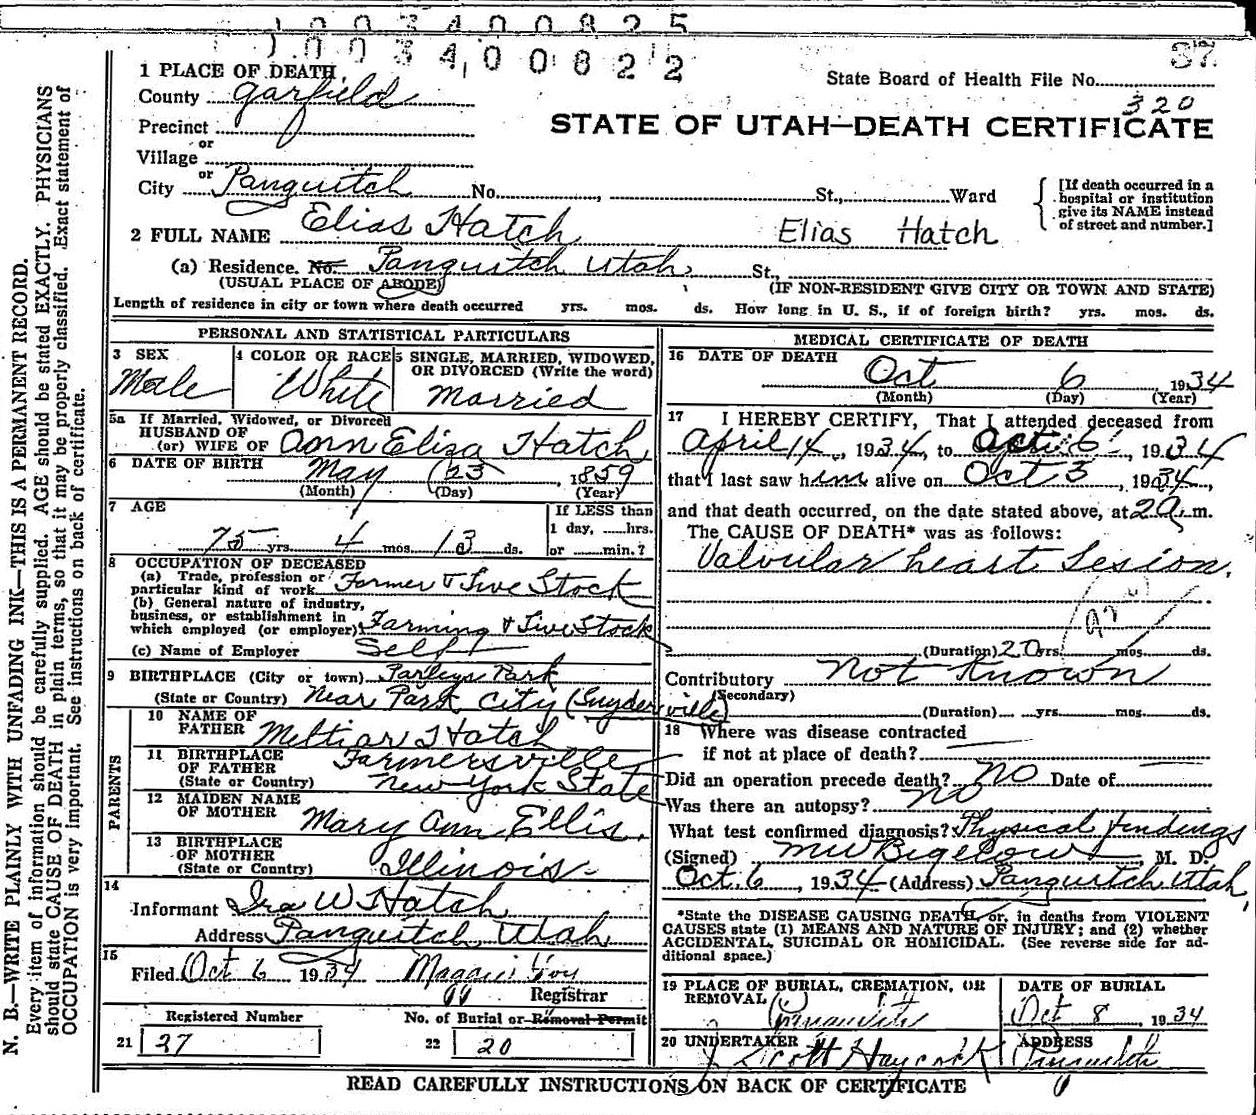 1003400825
1003400822
37
1 PLACE OF DEATH
State Board of Health File No.
County Garfield
320
Precinct
STATE OF UTAH—DEATH CERTIFICATE
or
Village
or
City Panguitch No. , St., Ward
[If death occurred in a hospital or institution give its NAME instead of street and number.]
2 FULL NAME Elias Hatch Elias Hatch
(a) Residence. No. Panguitch Utah, St.,
(USUAL PLACE OF ABODE) (IF NON-RESIDENT GIVE CITY OR TOWN AND STATE)
Length of residence in city or town where death occurred yrs. mos. ds. How long in U. S., if of foreign birth? yrs. mos. ds.
PERSONAL AND STATISTICAL PARTICULARS
3 SEX Male
4 COLOR OR RACE White
5 SINGLE, MARRIED, WIDOWED,
OR DIVORCED (Write the word)
Married
5a If Married, Widowed, or Divorced
HUSBAND OF
(or) WIFE OF Ann Eliza Hatch
6 DATE OF BIRTH May 23, 1859
(Month) (Day) (Year)
7 AGE
75 yrs. 4 mos. 13 ds.
If LESS than
1 day, hrs.
or min.?
8 OCCUPATION OF DECEASED
(a) Trade, profession or
particular kind of work Farmer & Live Stock
(b) General nature of industry,
business, or establishment in
which employed (or employer) Farming & Live Stock
(c) Name of Employer Self
9 BIRTHPLACE (City or town) Parleys Park
(State or Country) Near Park City (Snyderville)
PARENTS
10 NAME OF
FATHER Meltiar Hatch
11 BIRTHPLACE
OF FATHER
(State or Country)
Farmersville
New York State
12 MAIDEN NAME
OF MOTHER Mary Ann Ellis.
13 BIRTHPLACE
OF MOTHER
(State or Country) Illinois
14
Informant Ira W Hatch
Address Panguitch Utah
15
Filed Oct 6 1934 Maggie
Registrar
Registered Number
No. of Burial or Removal Permit
21 27
22 20
MEDICAL CERTIFICATE OF DEATH
16 DATE OF DEATH
Oct 6 1934
(Month) (Day) (Year)
17 I HEREBY CERTIFY, That I attended deceased from
April 14, 1934, to Oct 6, 1934
that I last saw him alive on Oct 3, 1934,
and that death occurred, on the date stated above, at 2 A.m.
The CAUSE OF DEATH* was as follows:
Valvular heart Lesion.
(Duration) 20 yrs. mos. ds.
Contributory Not Known
(Secondary)
(Duration) yrs. mos. ds.
18 Where was disease contracted
if not at place of death?
Did an operation precede death? No Date of
Was there an autopsy? no
What test confirmed diagnosis? Physical findings
(Signed) M W Bigelow, M. D.
Oct. 6, 1934 (Address) Panguitch, Utah,
*State the DISEASE CAUSING DEATH, or, in deaths from VIOLENT
CAUSES state (1) MEANS AND NATURE OF INJURY; and (2) whether
ACCIDENTAL, SUICIDAL OR HOMICIDAL. (See reverse side for ad-
ditional space.)
19 PLACE OF BURIAL, CREMATION, OR
REMOVAL
Panguitch
DATE OF BURIAL
Oct 8, 1934
20 UNDERTAKER
Scott Haycock
ADDRESS
Panguitch
READ CAREFULLY INSTRUCTIONS ON BACK OF CERTIFICATE
N. B.—WRITE PLAINLY WITH UNFADING INK—THIS IS A PERMANENT RECORD.
Every item of information should be carefully supplied. AGE should be stated EXACTLY. PHYSICIANS
should state CAUSE OF DEATH in plain terms, so that it may be properly classified. Exact statement of
OCCUPATION is very important. See instructions on back of certificate.